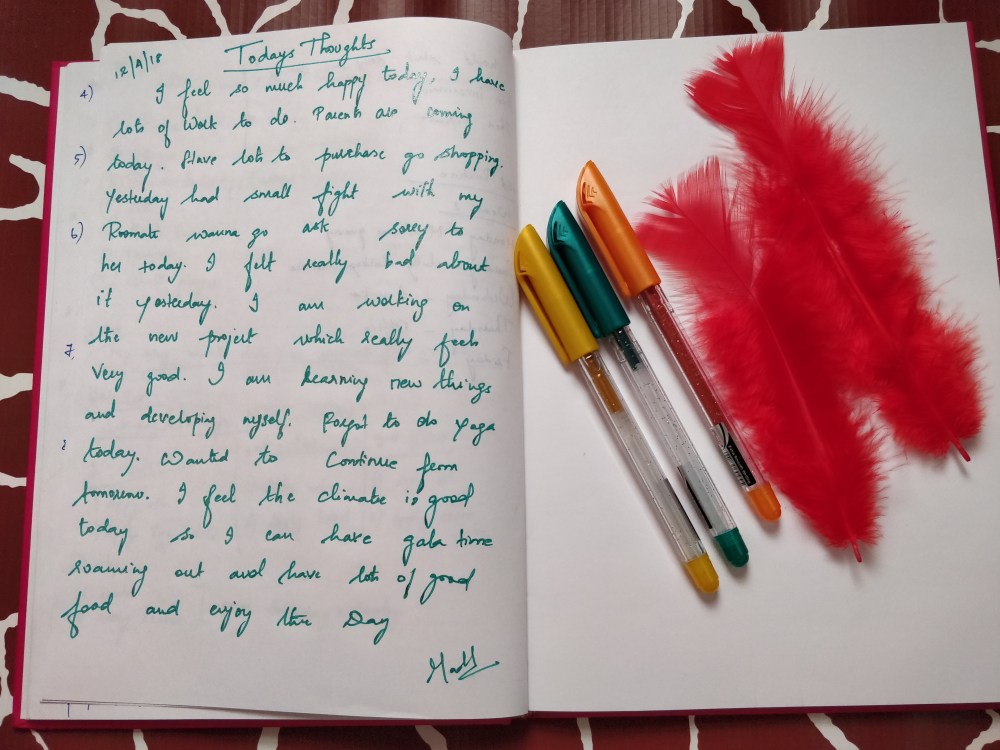 12/4/18
Todays Thoughts
4) I feel so much happy today, I have
lots of work to do. Parents are coming
5) today. Have lots to purchase go shopping.
Yesterday had small fight with my
6) Roomate wanna go ask sorry to
her today. I felt really bad about
it yesterday. I am working on
the new project which really feels
7. very good. I am learning new things
and developing myself. Forgot to do yoga
today. Wanted to continue from
tomorrow. I feel the climate is good
today so I can have gala time
roaming out and have lots of good
food and enjoy the Day